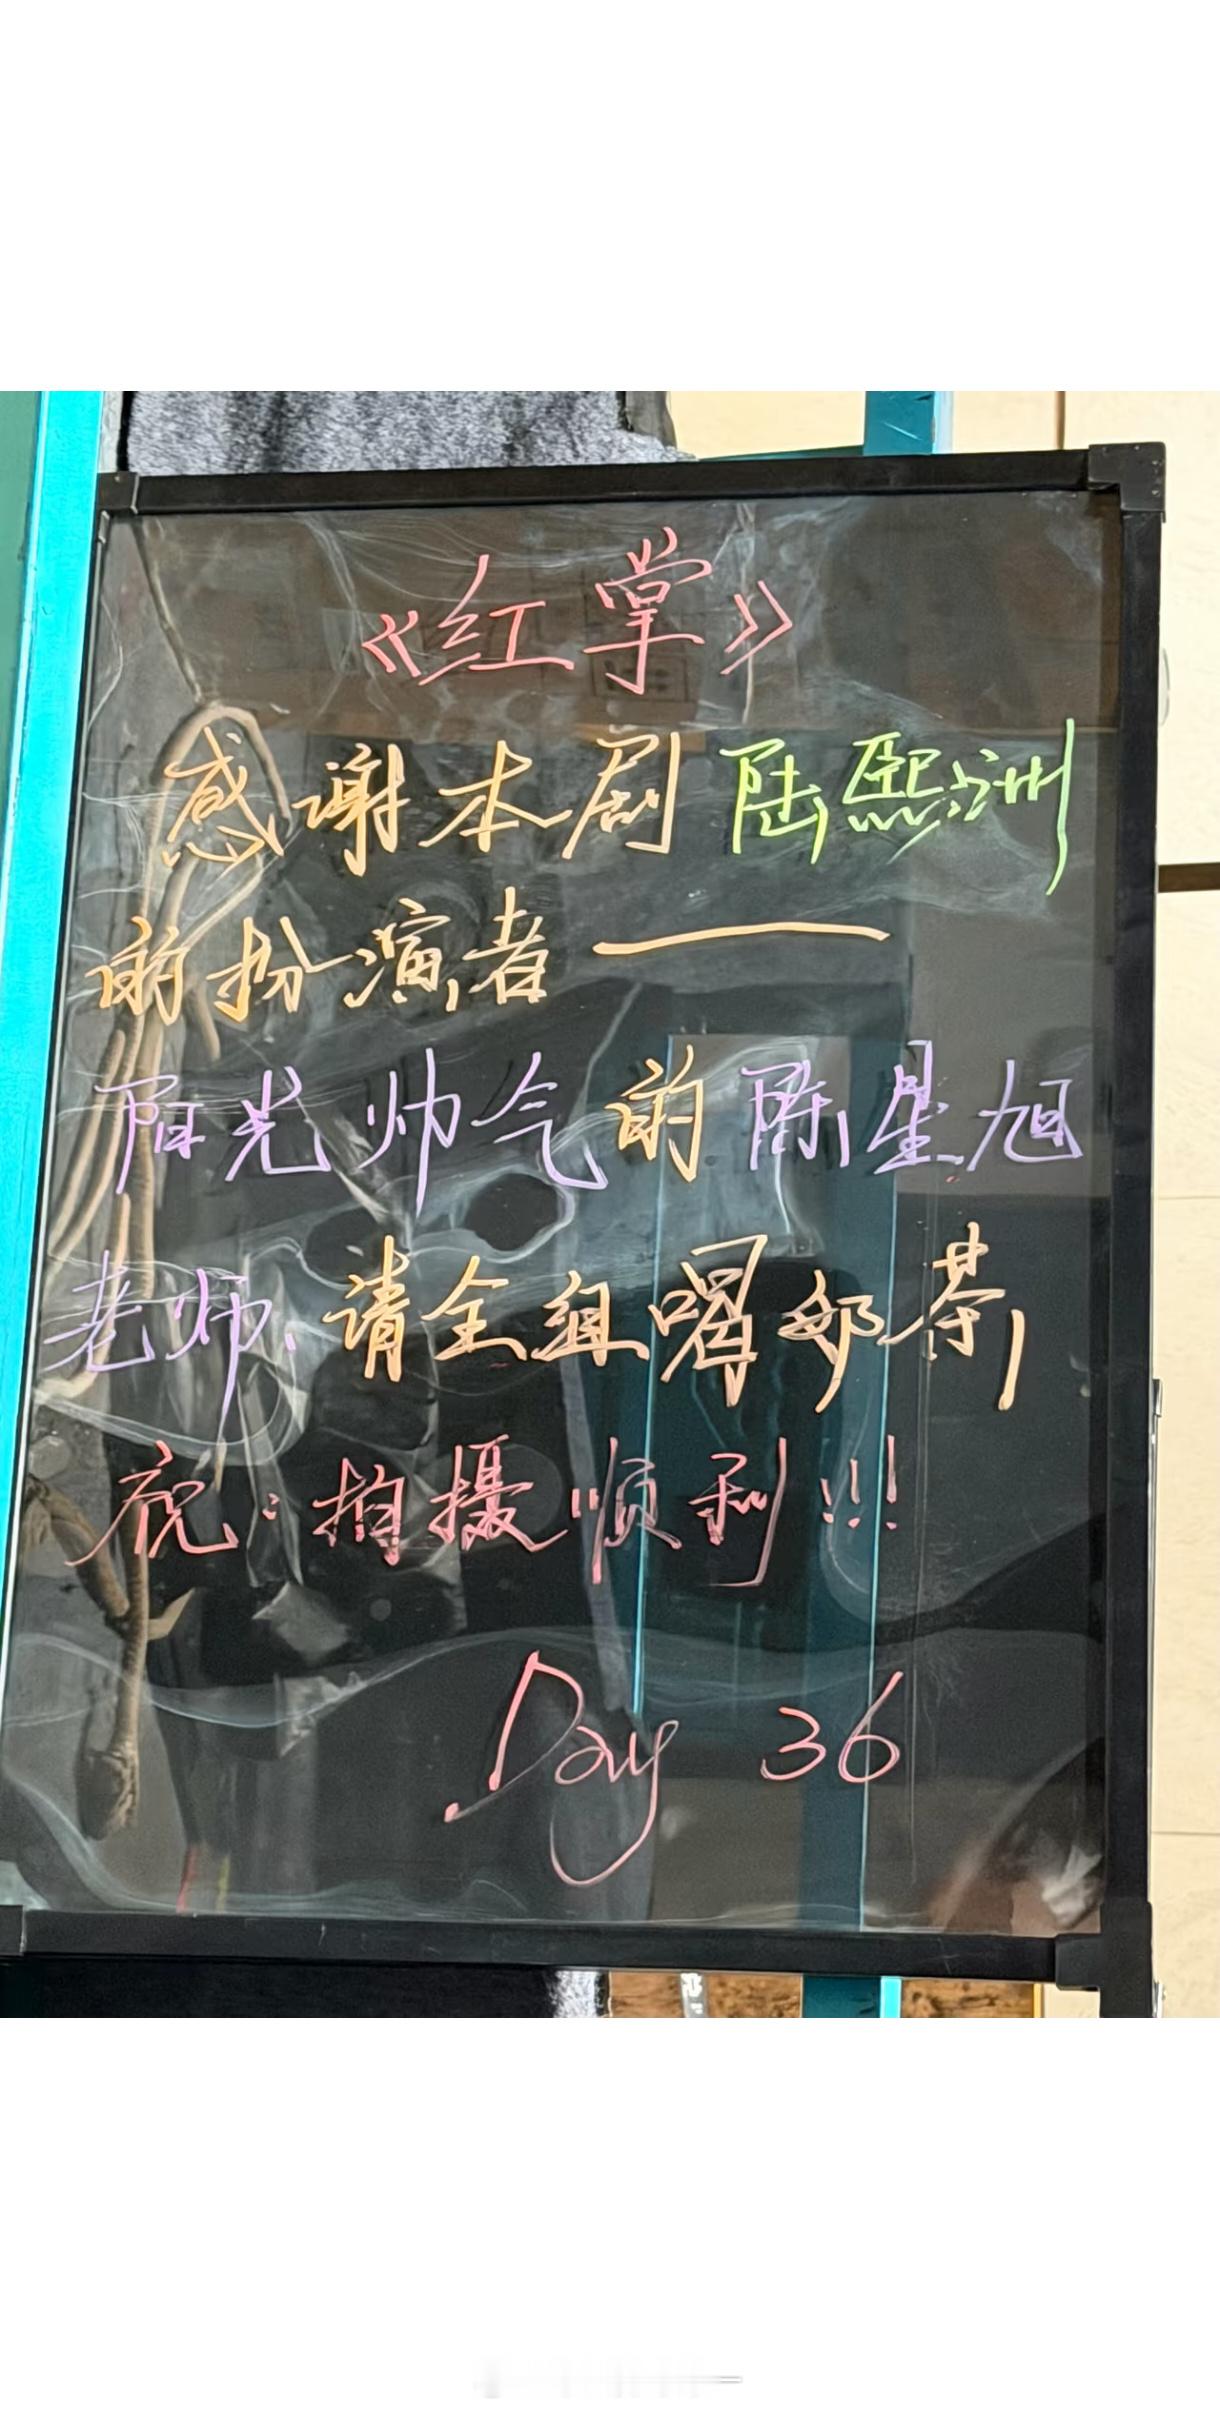 《红掌》
感谢本剧陆熙洲
的扮演者——
阳光帅气的陈星旭
老师、请全组喝奶茶,
祝:拍摄顺利!!!
Day 36